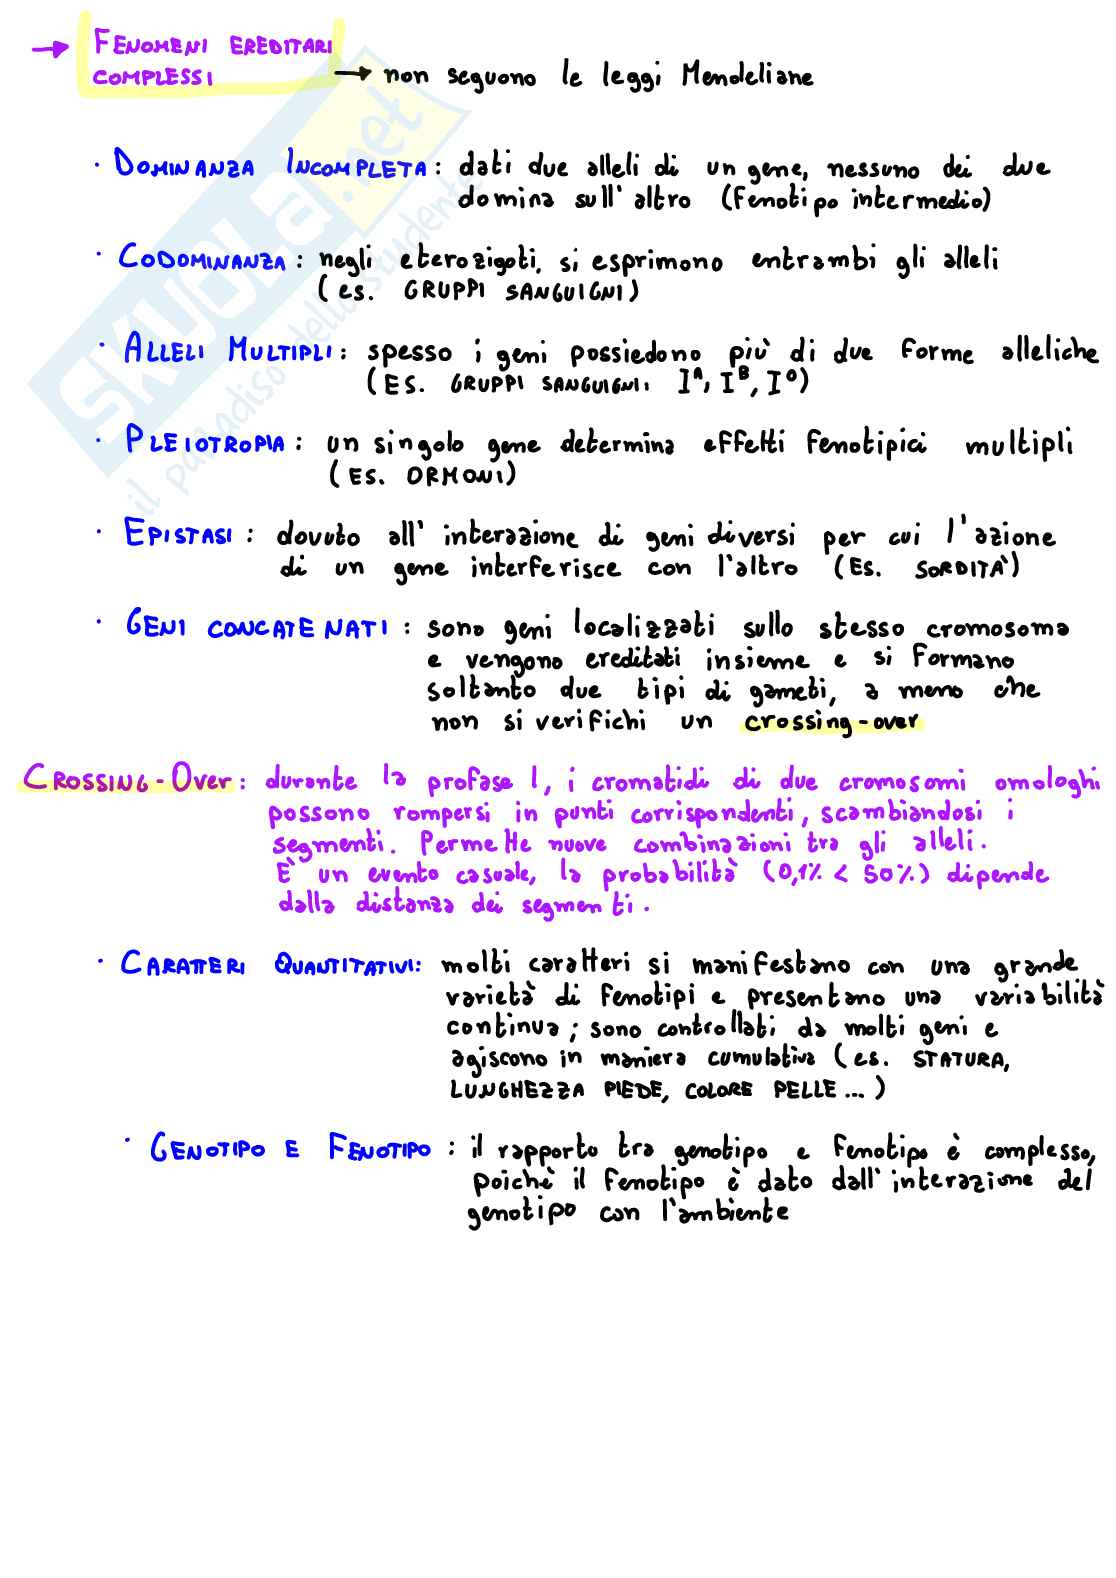 → FENOMENI EREDITARI
COMPLESSI → non seguono le leggi Mendeliane
· DOMINANZA INCOMPLETA: dati due alleli di un gene, nessuno dei due
domina sull'altro (fenotipo intermedio)
· CODOMINANZA: negli eterozigoti, si esprimono entrambi gli alleli
(es. GRUPPI SANGUIGNI)
· ALLELI MULTIPLI: spesso i geni possiedono più di due forme alleliche
(ES. GRUPPI SANGUIGNI: Iᴬ, Iᴮ, I⁰)
· PLEIOTROPIA: un singolo gene determina effetti fenotipici multipli
(ES. ORMONI)
· EPISTASI: dovuto all'interazione di geni diversi per cui l'azione
di un gene interferisce con l'altro (ES. SORDITÀ)
· GENI CONCATENATI: sono geni localizzati sullo stesso cromosoma
e vengono ereditati insieme e si formano
soltanto due tipi di gameti, a meno che
non si verifichi un crossing-over
CROSSING-OVER: durante la profase I, i cromatidi di due cromosomi omologhi
possono rompersi in punti corrispondenti, scambiandosi i
segmenti. Permette nuove combinazioni tra gli alleli.
È un evento casuale, la probabilità (0,1% < 50%) dipende
dalla distanza dei segmenti.
· CARATTERI QUANTITATIVI: molti caratteri si manifestano con una grande
varietà di fenotipi e presentano una variabilità
continua; sono controllati da molti geni e
agiscono in maniera cumulativa (es. STATURA,
LUNGHEZZA PIEDE, COLORE PELLE...)
· GENOTIPO E FENOTIPO: il rapporto tra genotipo e fenotipo è complesso,
poichè il fenotipo è dato dall'interazione del
genotipo con l'ambiente
SKUOLA.net
il paradiso dello studente